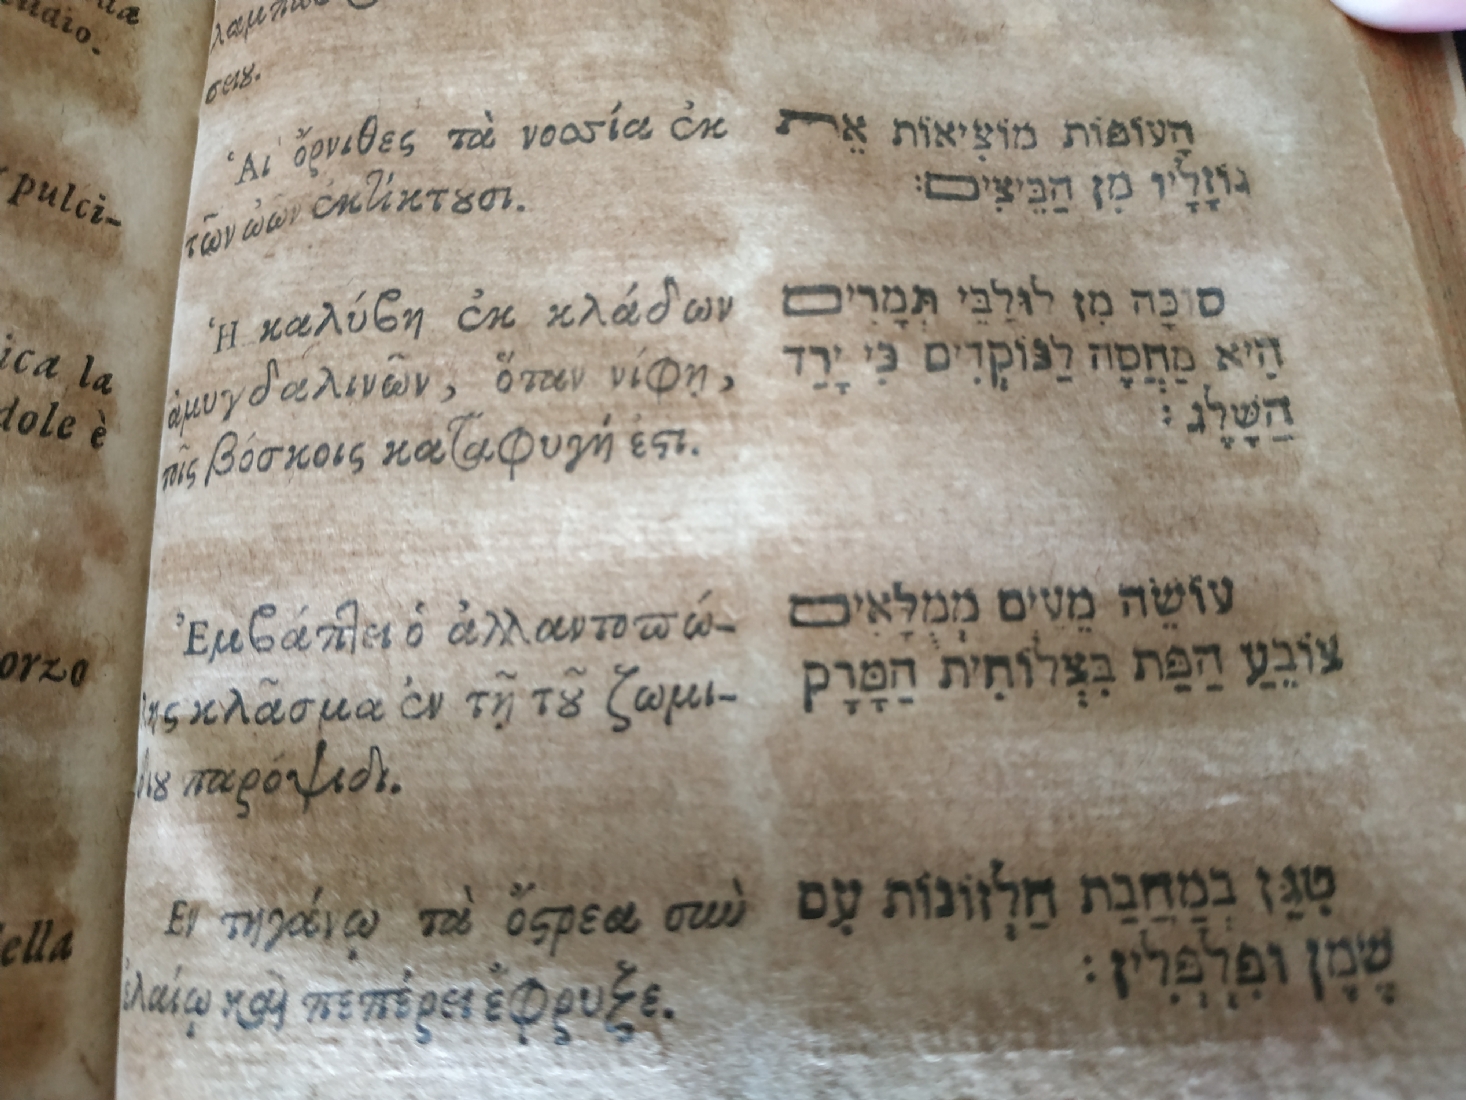 ella
endio.
pulci-
ica la
dole è
orzo
della
σειȣ.
Ἁι ὄρνιθες τὰ νοσσία ἐκ
τῶν ὠῶν ἐκτίκτȣσι.
Ἡ καλύβη ἐκ κλάδων
ἀμυγδαλινῶν, ὅταν νίφῃ,
τοῖς βόσκοις καταφυγή ἐστι.
Ἐμβάπτει ὁ ἀλλαντοπώ-
λης κλᾶσμα ἐν τῇ τȣ͂ ζωμι-
δίȣ παρόψιδι.
Εν τηγάνῳ τὰ ὄστρεα σὺν
ἐλαίῳ καὶ πεπέρει ἔφρυξε.
הָעוֹפוֹת מוֹצִיאוֹת אֵת
גוֹזָלָיו מִן הַבֵּיצִים:
סוּכָּה מִן לוּלַבֵּי תְּמָרִים
הִיא מַחֲסָה לַנּוֹקְדִים כִּי יָרַד
הַשָּׁלָג :
עוֹשֵׂה מֵעִים מְמְלָאִים
צוֹבֵעַ הַפַּת בְּצְלוֹחִית הַמָּרָק
טִגַּן בְּמַחֲבַת חַלְזוֹנוֹת עִם
שֶׁמָן וּפִלְפְּלִין :